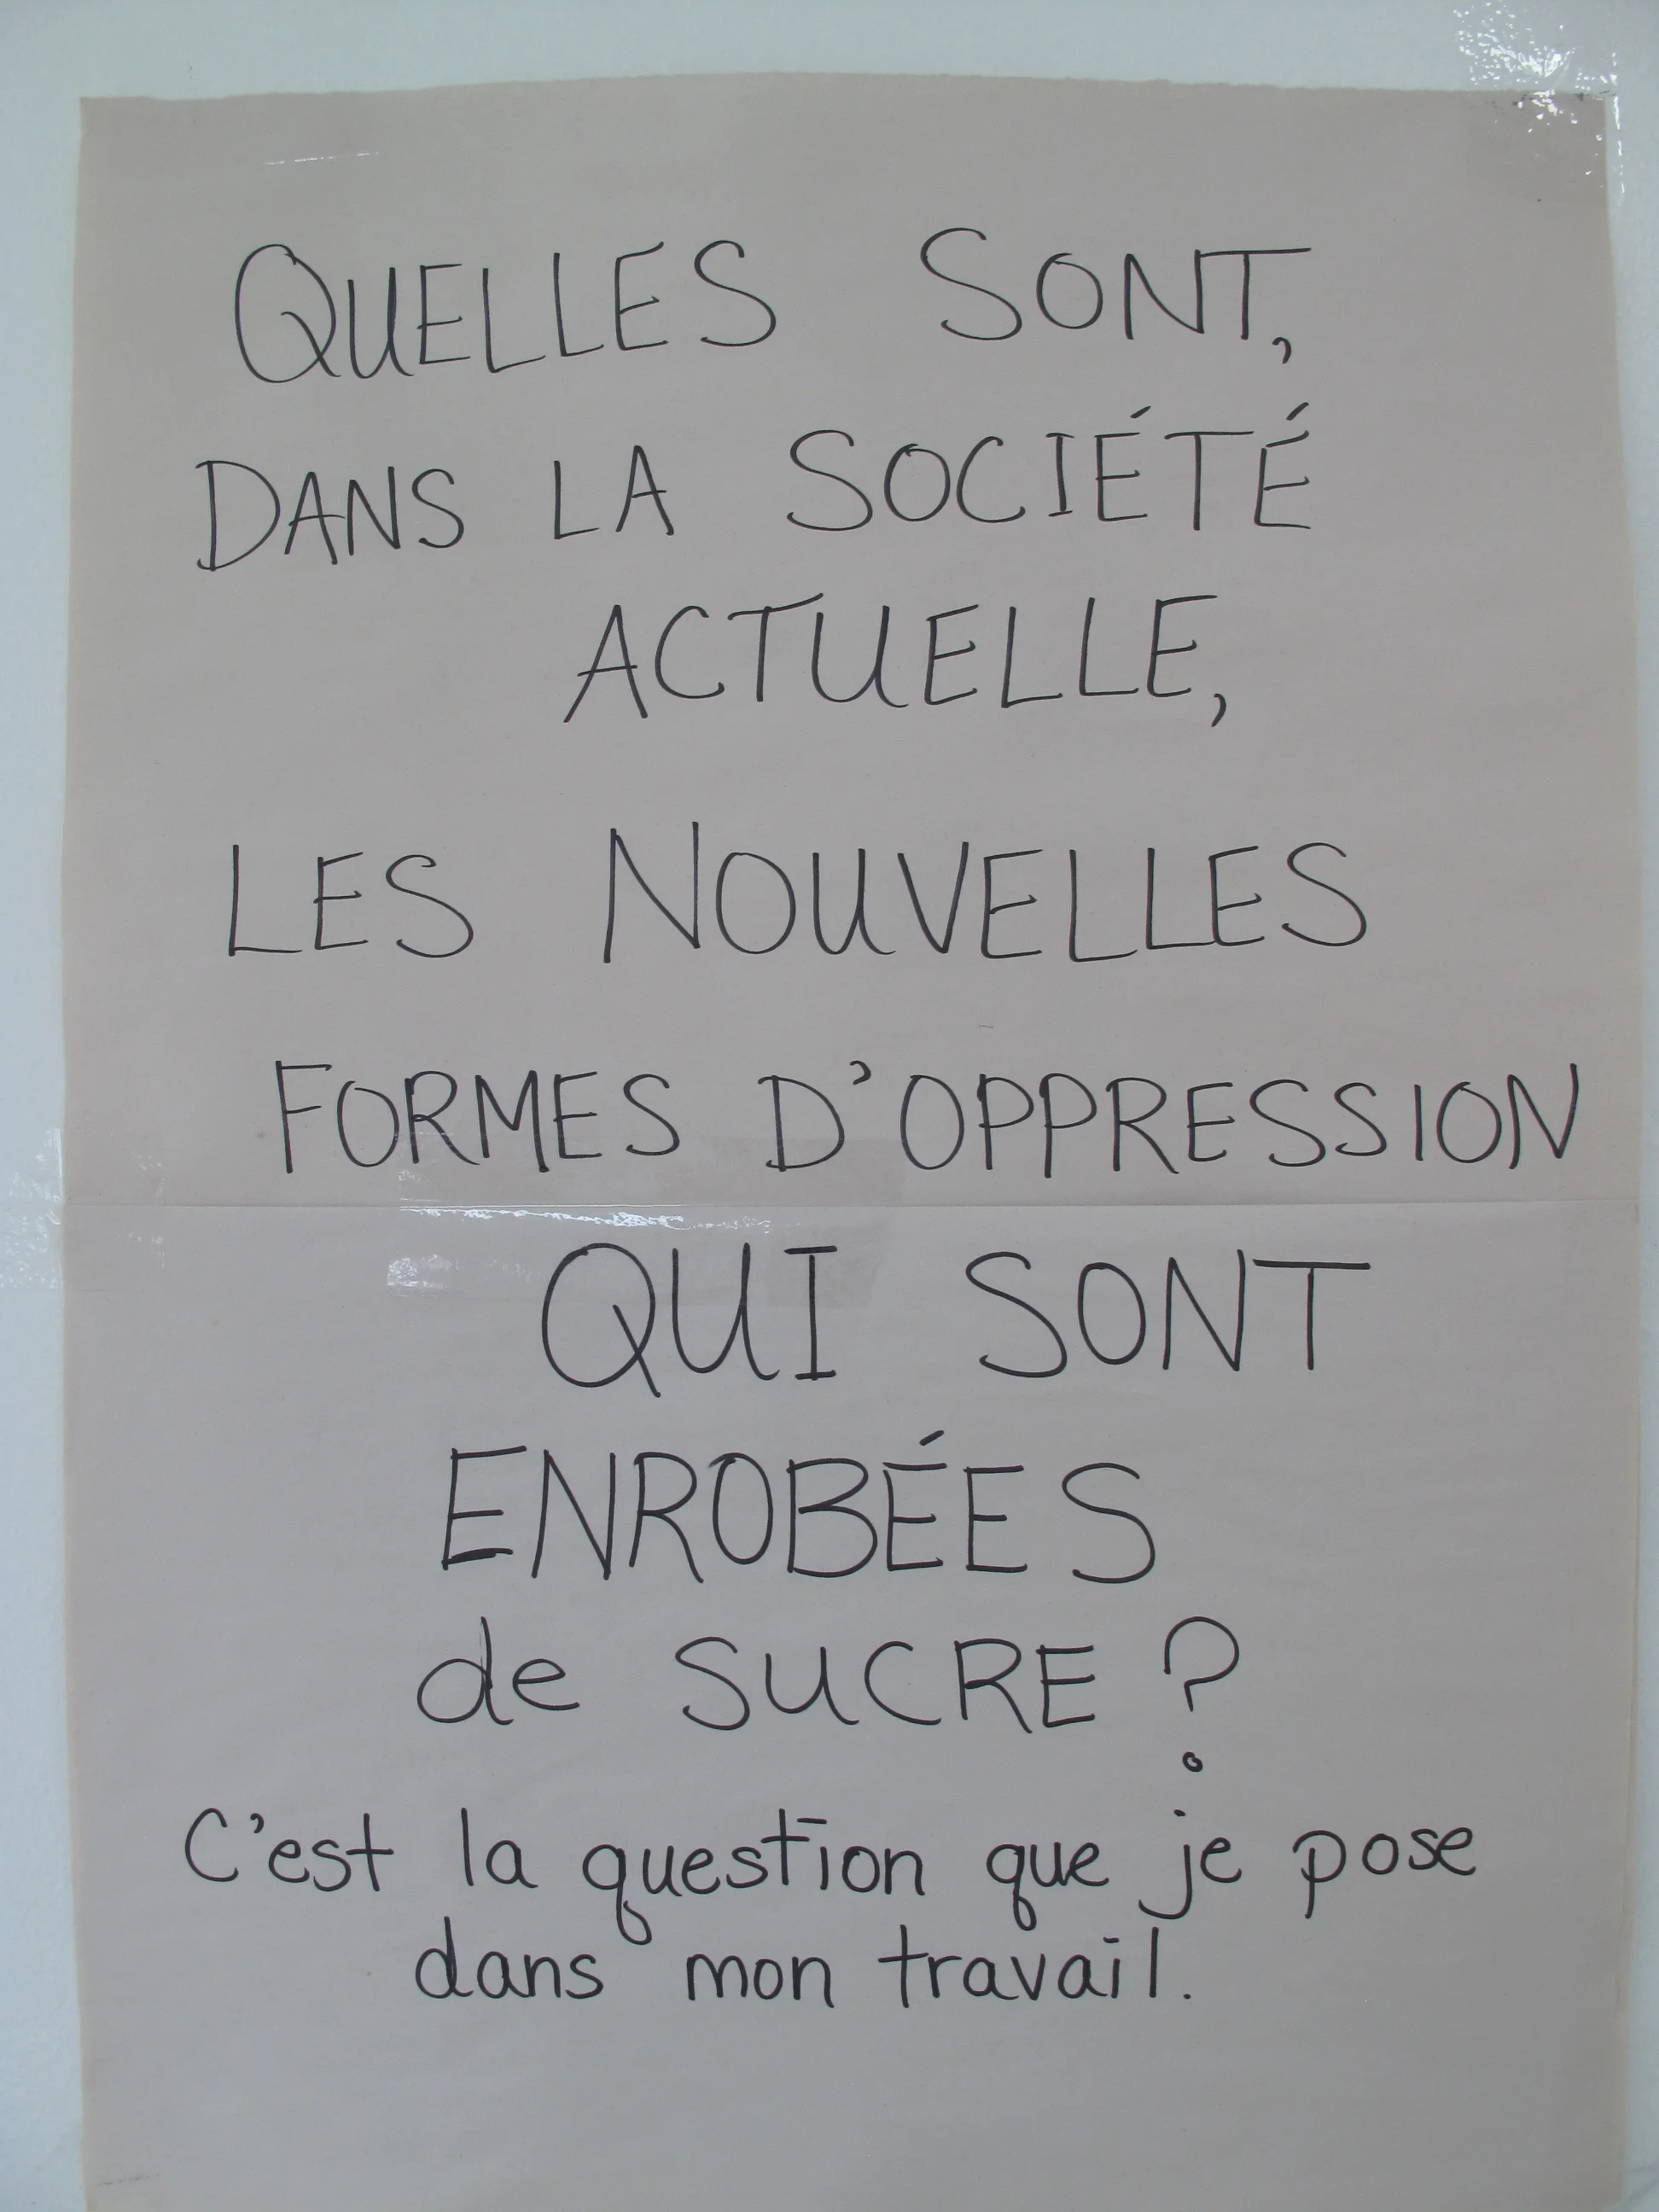 QUELLES SONT,
DANS LA SOCIÉTÉ
ACTUELLE,
LES NOUVELLES
FORMES D'OPPRESSION
QUI SONT
ENROBÉES
de SUCRE ?
C'est la question que je pose
dans mon travail.